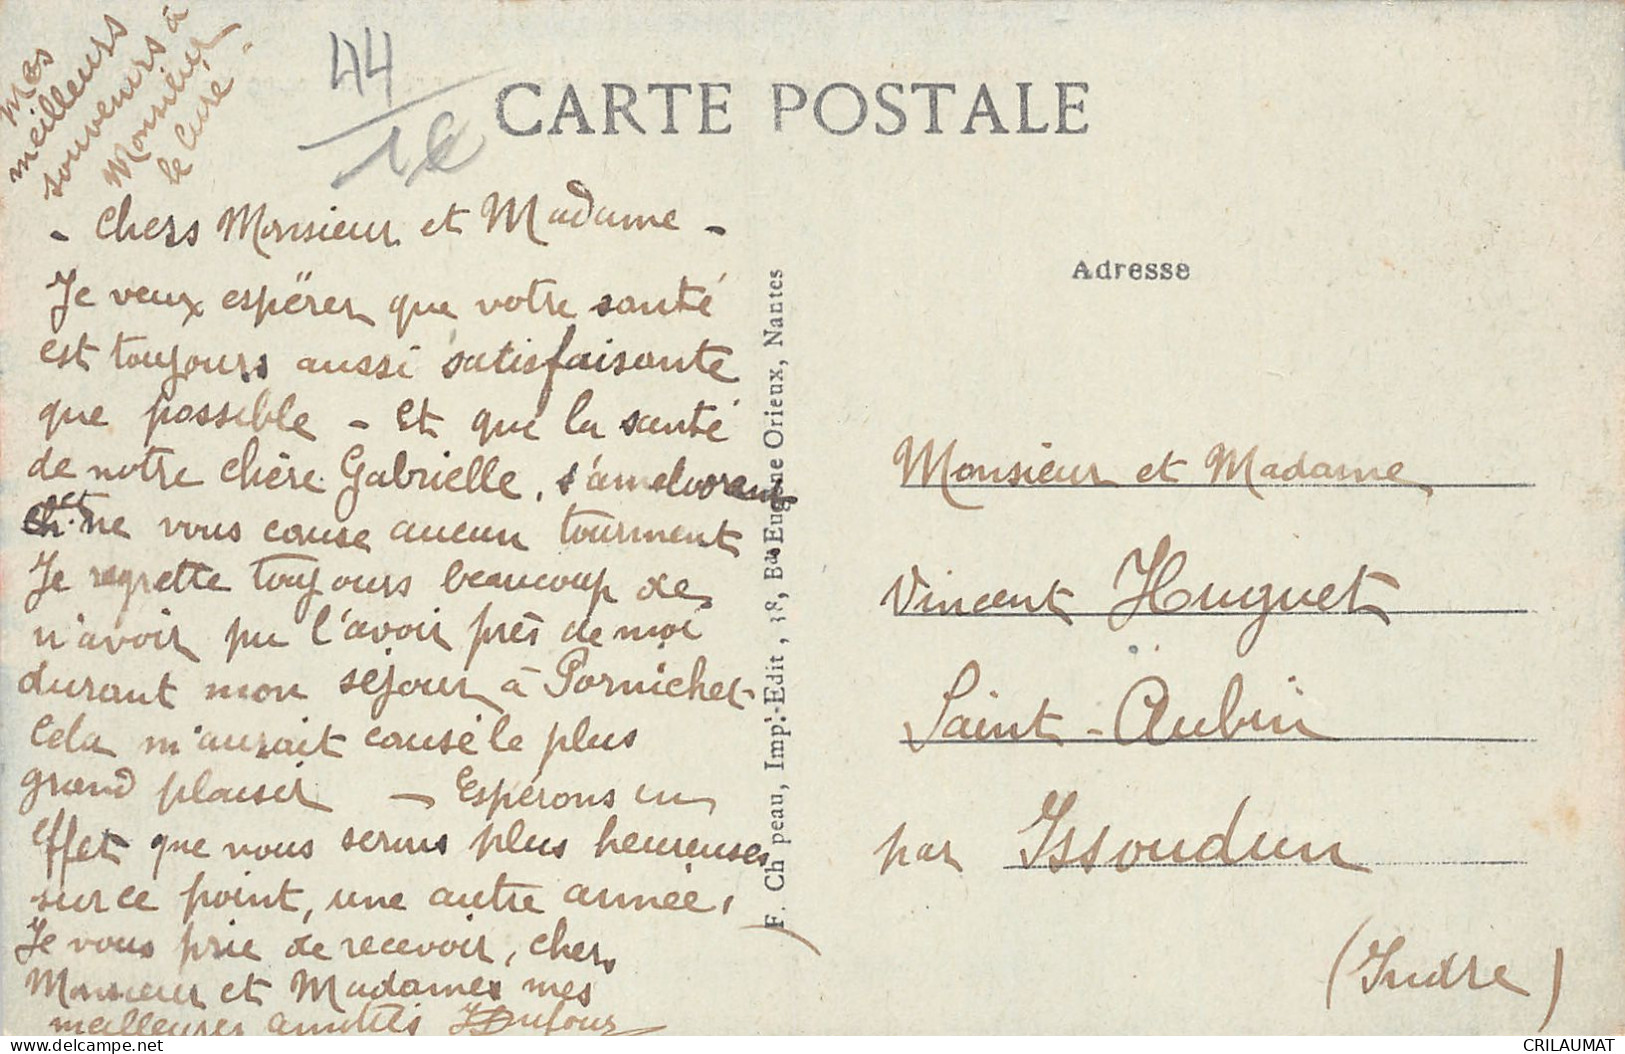 Mes
meilleurs
souvenirs à
Monsieur
le Curé -
44
1€
CARTE POSTALE
- Chers Monsieur et Madame -
Je veux espérer que votre santé
est toujours aussi satisfaisante
que possible - Et que la santé
de notre chère Gabrielle, s'améliorant
et ne vous cause aucun tourment
Je regrette toujours beaucoup de
n'avoir pu l'avoir près de moi
durant mon séjour à Pornichet -
Cela m'aurait causé le plus
grand plaisir - Espérons en
effet que nous serons plus heureuses
sur ce point, une autre année,
Je vous prie de recevoir, cher
Monsieur et Madame mes
meilleures amitiés Dufour
F. Ch peau, Imp.-Edit, 38, Bd Eugène Orieux, Nantes
Adresse
Monsieur et Madame
Vincent Huguet
Saint-Aubin
par Issoudun
(Indre)
CRILAUMAT